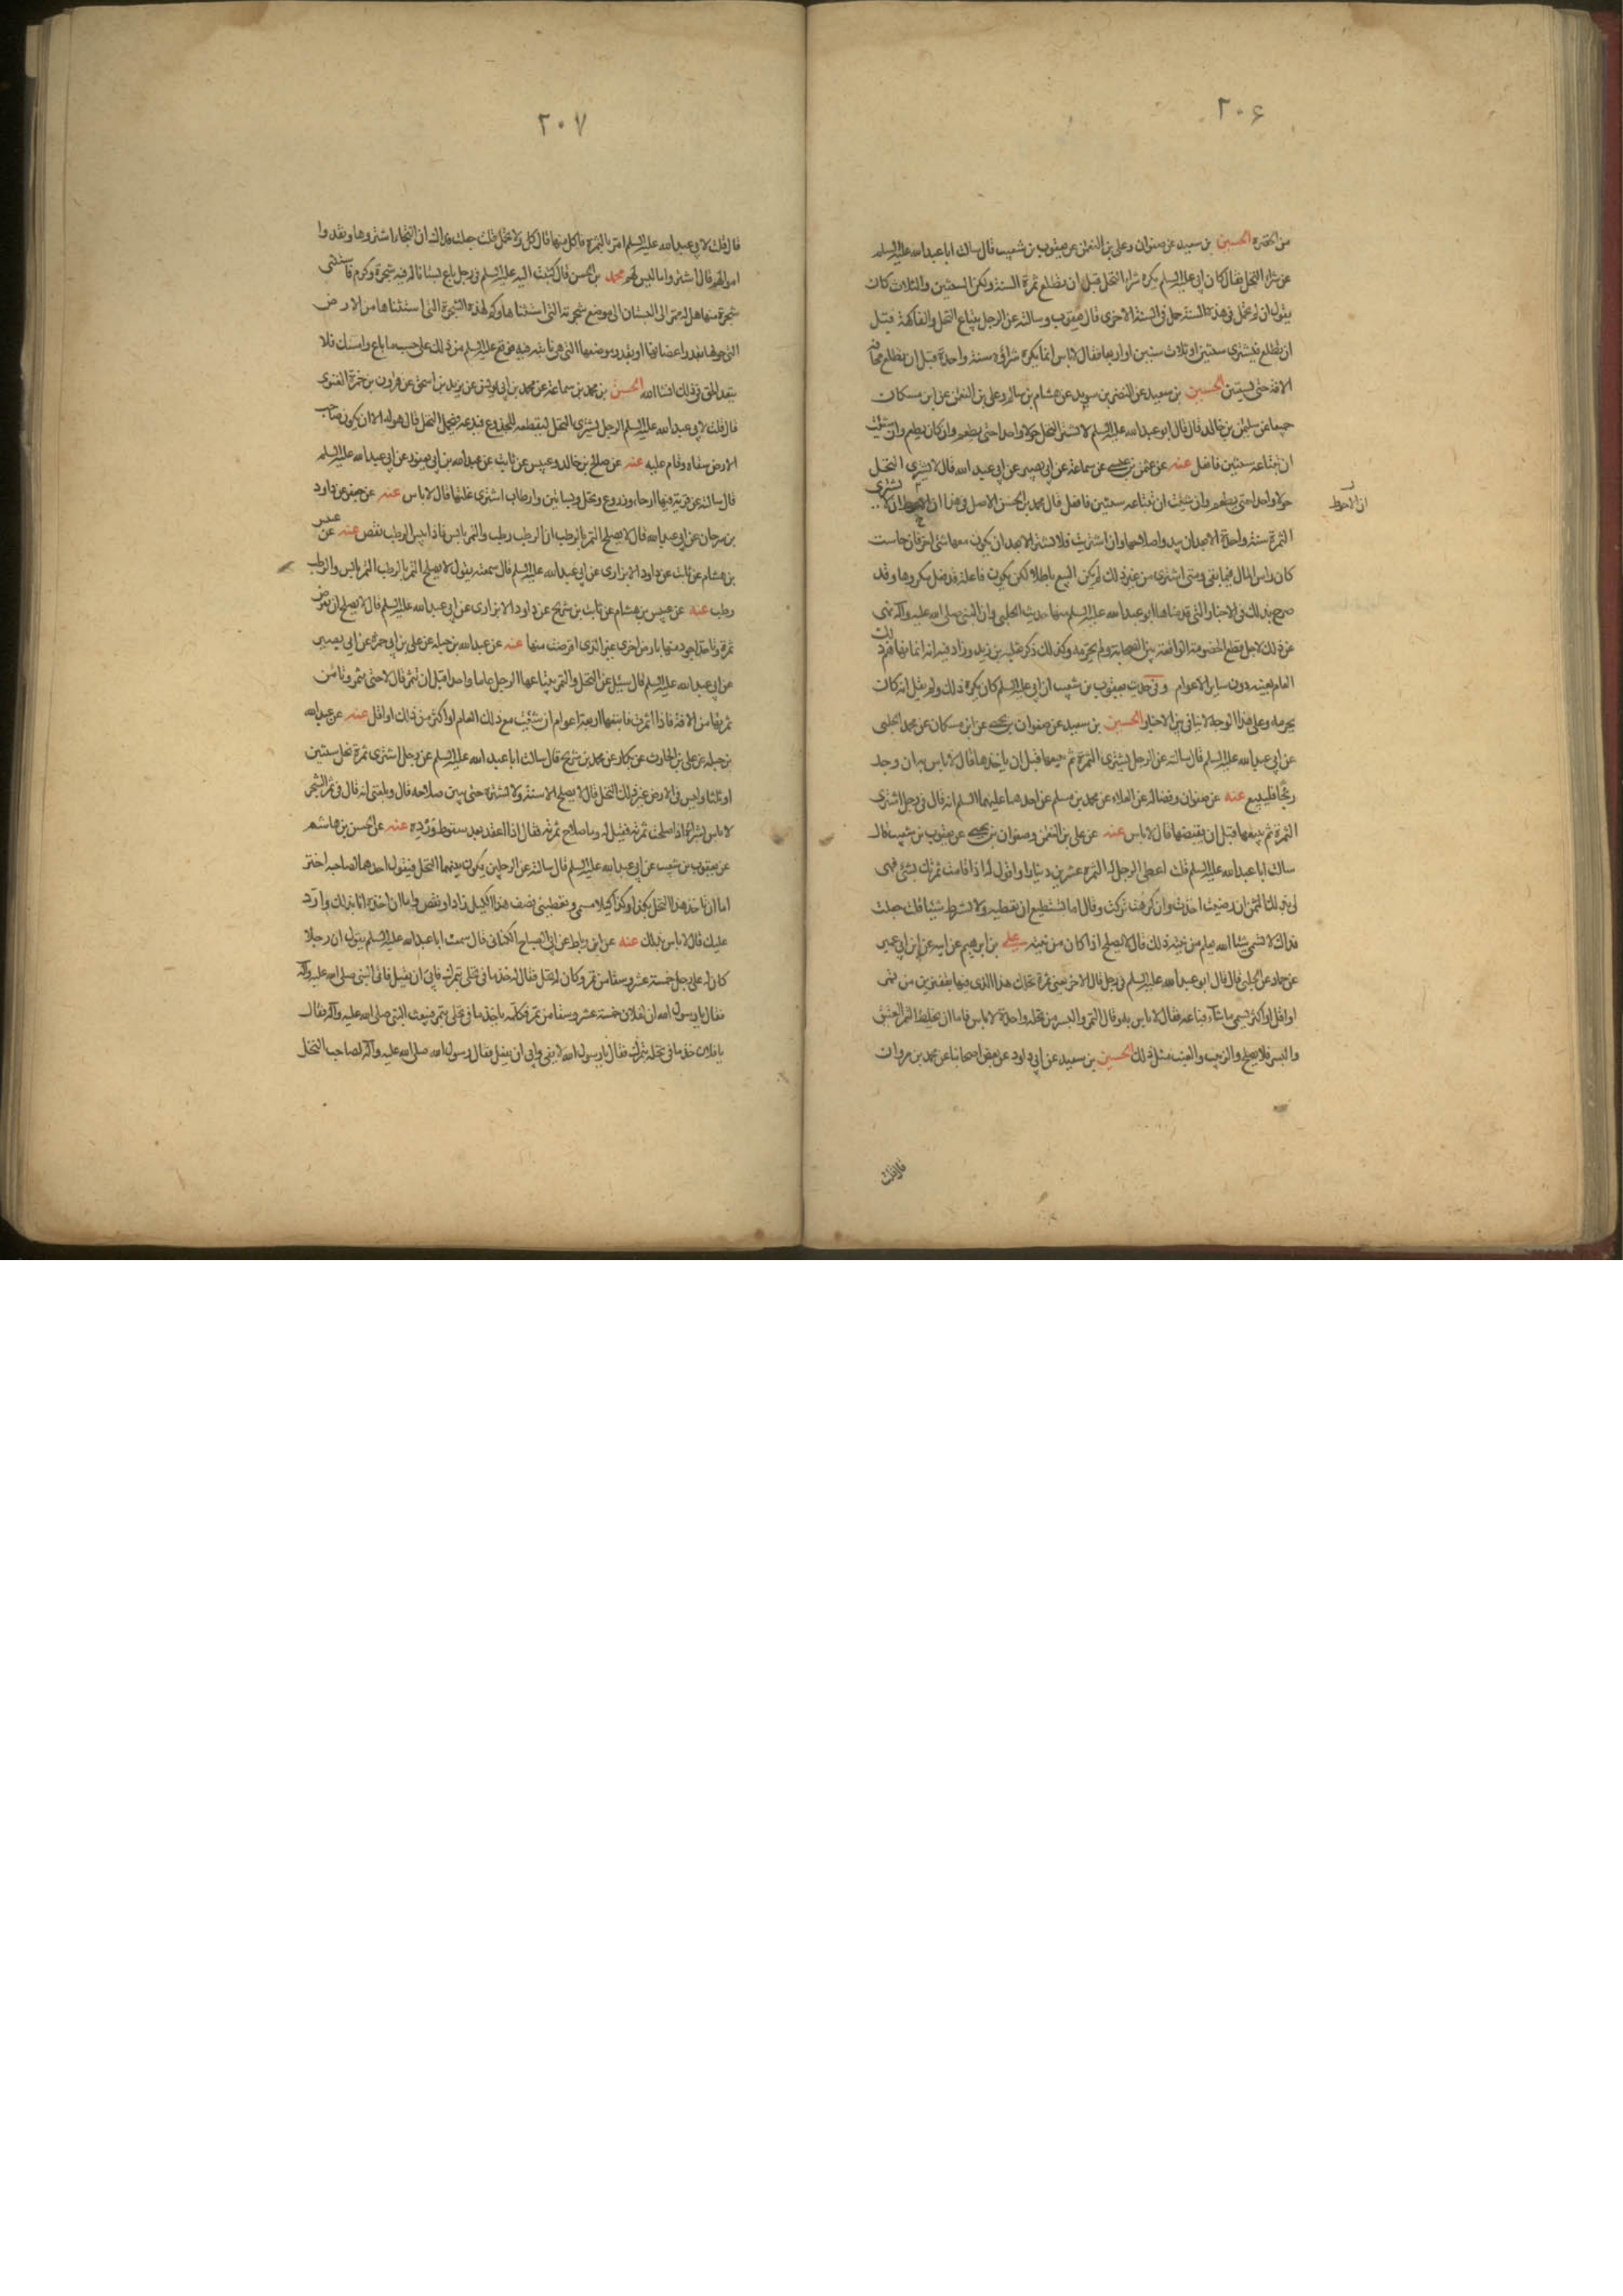 ٢٠۶
من الحمرة الحسين بن سعيد عن صفوان وعلى بن النعمن عن يعقوب بن شعيب قال سالت ابا عبد الله عليه السلم
عن شراء النخل فقال كان ابى عليه السلم يكره شراء النخل قبل ان يطلع ثمرة السنة ولكن السنتين والثلاث كان
يقول ان لم يحمل فى هذه السنة حمل فى السنة الاخرى قال يعقوب وسالته عن الرجل يبتاع النخل والفاكهة قبل
ان يطلع فيشترى سنتين او ثلاث سنين او اربعا فقال لاباس انما يكره شراؤه سنة واحدة قبل ان يطلع مخافة
الافة حتى يستبين الحسين بن سعيد عن النضر بن سويد عن هشام بن سالم وعلى بن النعمن عن ابن مسكان
جميعا عن سليمن بن خالد قال قال ابو عبد الله عليه السلم لا تشتر النخل حولا واحدا حتى يطعم وان كان يطعم وان شئت
ان تبتاعه سنتين فافعل عنه عن عثمن بن عيسى عن سماعة عن ابى بصير عن ابى عبد الله قال لا تشترى النخل
حولا واحدا حتى يطعم وان شئت ان تبتاعه سنتين فافعل قال محمد بن الحسن الاصل فى هذا ان الاحوط ان لا يشترى
ان الاحوط
الثمرة سنة واحدة الا بعد ان يبدو صلاحها وان اشتريت فلا تشتر الا بعد ان يكون معها شئ اخر فان خاست
كان راس المال فيما بقى ومتى اشترى من غير ذلك لم يكن البيع باطلا لكن يكون فاعله قد فعل مكروها وقد
صرح بذلك فى الاخبار التى قدمناها ابو عبد الله عليه السلم منها حديث الحلبى وان النبى صلى الله عليه وآله نهى
عن ذلك لاجل قطع الخصومة الواقعة بين الصحابة ولم يحرمه وكذلك ذكر ثعلبه بن زيد وزاد فيه انه انما نهى ذلك
العام بعينه دون ساير الاعوام وفى حديث يعقوب بن شعيب ان ابى عليه السلم كان يكره ذلك ولم يقل انه كان
يحرمه وعلى هذا الوجه لا تنافى بين الاخبار الحسين بن سعيد عن صفوان بن يحيى عن ابن مسكان عن محمد الحلبى
عن ابى عبد الله عليه السلم قال سالته عن الرجل يشترى الثمرة ثم يبيعها قبل ان ياخذها قال لاباس به ان وجد
ربحا فليبيع عنه عن صفوان وفضالة عن العلاء عن محمد بن مسلم عن احدهما عليهما السلم انه قال فى رجل اشترى
الثمرة ثم يبيعها قبل ان يقبضها قال لاباس عنه عن على بن النعمن وصفوان بن يحيى عن يعقوب بن شعيب قال
سالت ابا عبد الله عليه السلم قلت اعطى الرجل له الثمرة عشرين دينارا واقول له اذا قامت ثمرتك بشئ فهى
لى بذلك الثمن ان رضيت اخذت وان كرهت تركت وقال اما تستطيع ان تعطيه ولا تشترط شيئا قلت جعلت
فداك لا تسمى شيئا الله يعلم من نيته ذلك قال لا يصلح اذا كان من نيته على بن ابرهيم عن ابيه عن ابن ابى عمير
عن حماد عن الحلبى قال قال ابو عبد الله عليه السلم فى رجل قال لاخر بعنى ثمرة نخلك هذا الذى فيها بقفيزين من تمر
او اقل او اكثر يسمى ما شاء فباعه فقال لاباس به وقال التمر والبسر من نخلة واحدة لاباس فاما ان يخلط التمر العتيق
والبسر فلا يصلح والزبيب والعنب مثل ذلك الحسين بن سعيد عن ابى داود عن بعض اصحابنا عن محمد بن مروان
قال قلت
٢٠٧
قال قلت لابى عبد الله عليه السلم امر بالثمرة فاكل منها قال كل ولا تحمل قلت جعلت فداك ان التجار اشتروها ونقدوا
اموالهم قال اشتروا ما ليس لهم محمد بن الحسن قال كتبت اليه عليه السلم فى رجل باع بستانا له فيه شجرة وكرم فاستثنى
شجرة منها هل له ممر الى البستان الى موضع شجرته التى استثناها وكم لهذه الشجرة التى استثناها من الارض
التى حولها بقدر اغصانها او بقدر موضعها التى هى نابتة فيه فوقع عليه السلم من ذلك على حسب ما باع وامسك فلا
يتعد الحق فى ذلك انشا الله الحسن بن محمد بن سماعة عن محمد بن ابى يونس عن يزيد بن اسحق عن هرون بن حمزة الغنوى
قال قلت لابى عبد الله عليه السلم الرجل يشترى النخل ليقطعه للجذوع فيدعه فيحمل النخل قال هو له الا ان يكون صاحب
الارض سقاه وقام عليه عنه عن صالح بن خالد وعبيس عن ثابت عن عبد الله بن ابى يعفور عن ابى عبد الله عليه السلم
قال سالته عن قرية فيها ارحاء وزروع ونخل وبساتين وارطاب اشترى غلتها قال لاباس عنه عن جعفر عن داود
بن سرحان عن ابى عبد الله قال لا يصلح التمر بالرطب ان الرطب رطب والتمر يابس فاذا يبس الرطب نقص عنه عن عبيس
بن هشام عن ثابت عن داود الابزارى عن ابى عبد الله عليه السلم قال سمعته يقول لا يصلح التمر بالرطب التمر يابس والرطب
رطب عنه عن عبيس بن هشام عن ثابت بن شريح عن داود الابزارى عن ابى عبد الله عليه السلم قال لا يصلح ان تقرض
ثمرة وتاخذ اجود منها بارض اخرى غير الذى اقرضت منها عنه عن عبد الله بن جبله عن على بن ابى حمزة عن ابى بصير
عن ابى عبد الله عليه السلم قال سئل عن النخل والتمر يبتاعها الرجل عاما واحدا قبل ان تثمر قال لا حتى تثمر وتامن
ثمرتها من الافة فاذا اثمرت فابتعها اربعة اعوام ان شئت مع ذلك العام او اكثر من ذلك او اقل عنه عن عبد الله
بن جبله عن على بن الحارث عن بكار عن محمد بن شريح قال سالت ابا عبد الله عليه السلم عن رجل اشترى ثمرة نخل سنتين
او ثلثا وليس فى الارض غير ذلك النخل قال لا يصلح الا سنة ولا تشتره حتى يبين صلاحه قال وبلغنى انه قال فى ثمر الشجر
لاباس بشرائه اذا صلحت ثمرته فقيل له وما صلاح ثمرته فقال اذا عقد بعد سقوط ورده عنه عن الحسن بن هاشم
عن يعقوب بن شعيب عن ابى عبد الله عليه السلم قال سالته عن الرجلين يكون بينهما النخل فيقول احدهما لصاحبه اختر
اما ان تاخذ هذا النخل بكذا وكذا كيلا مسمى وتعطينى نصف هذا الكيل زاد او نقص واما ان اخذه انا بذلك وارد
عليك قال لاباس بذلك عنه عن ابن رباط عن ابى الصباح الكنانى قال سمعت ابا عبد الله عليه السلم يقول ان رجلا
كان له على رجل خمسة عشر وسقا من تمر وكان له نخل فقال له خذ ما فى نخلى بتمرك فابى ان يقبل فاتى النبى صلى الله عليه وآله
فقال يا رسول الله ان لفلان خمسة عشر وسقا من تمر فكلمه ياخذ ما فى نخلى بتمره فبعث النبى صلى الله عليه وآله فقال
يا فلان خذ ما فى نخله بتمرك فقال يا رسول الله لا يفى وابى ان يفعل فقال رسول الله صلى الله عليه وآله لصاحب النخل